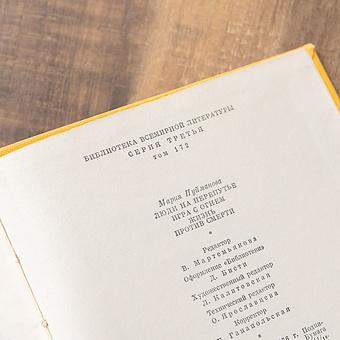 БИБЛИОТЕКА ВСЕМИРНОЙ ЛИТЕРАТУРЫ
СЕРИЯ ТРЕТЬЯ
ТОМ 172
Мария Пуйманова
ЛЮДИ НА ПЕРЕПУТЬЕ
ИГРА С ОГНЕМ
ЖИЗНЬ
ПРОТИВ СМЕРТИ
*
Редактор
В. Мартемьянова
Оформление «Библиотеки»
Д. Бисти
Художественный редактор
Л. Калитовская
Технический редактор
О. Ярославцева
Корректор
Г. Ганапольская
г. Подпи-
Бумага